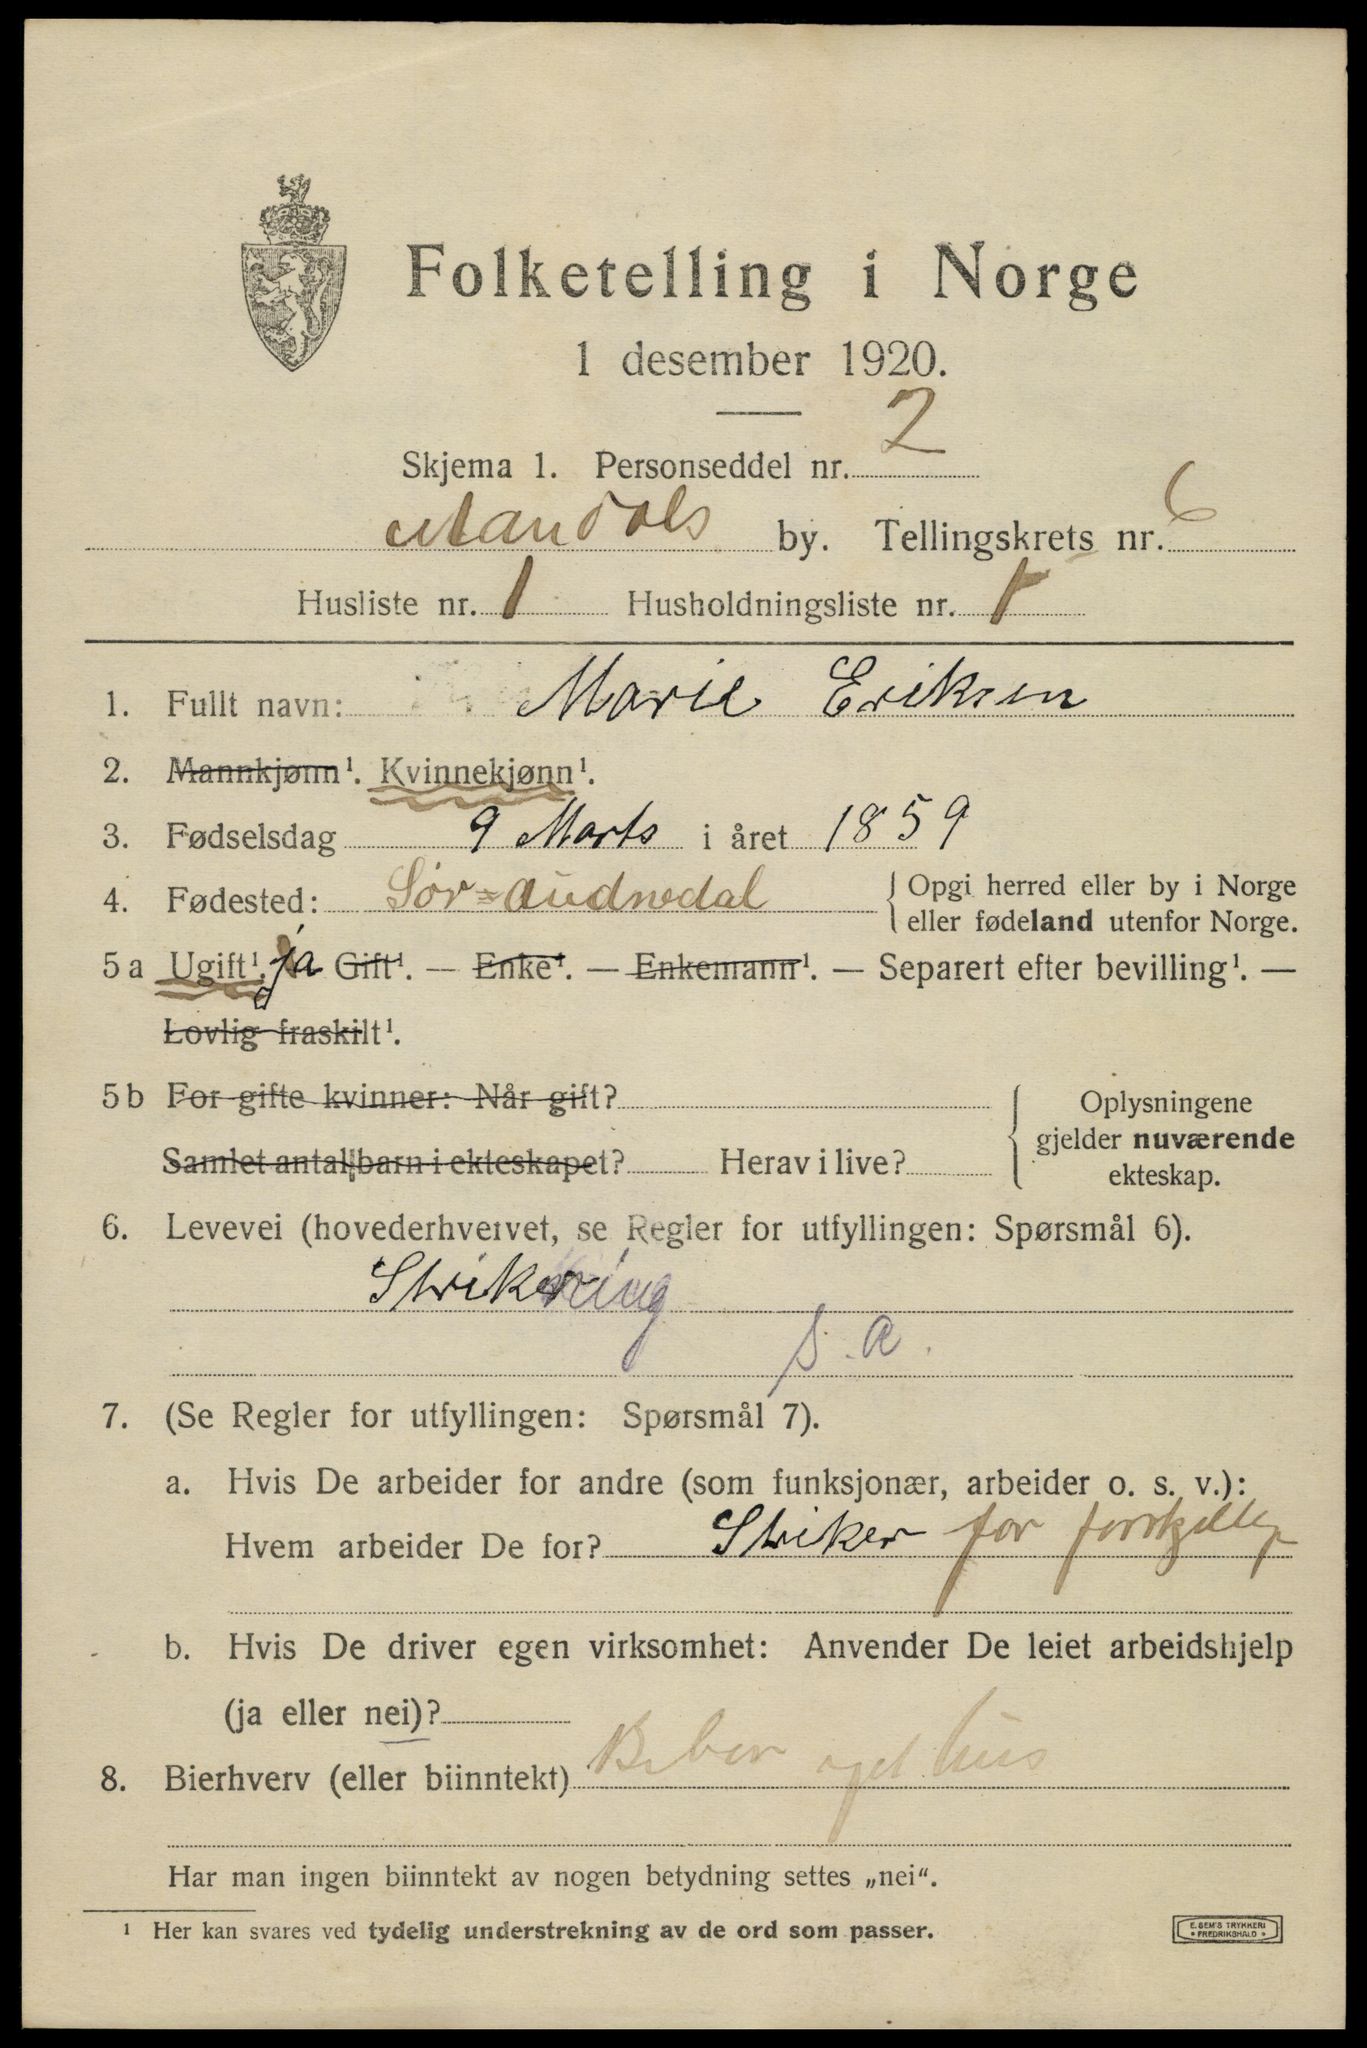 Folketelling i Norge
1 desember 1920.
Skjema 1. Personseddel nr. 2
Mandals by. Tellingskrets nr. 6
Husliste nr. 1 Husholdningsliste nr. 1
1. Fullt navn: Marie Eriksen
2. Mannkjønn¹. Kvinnekjønn¹.
3. Fødselsdag 9 Marts i året 1859
4. Fødested: Sør-Audnedal { Opgi herred eller by i Norge
eller fødeland utenfor Norge.
5 a Ugift¹. ja Gift¹. — Enke¹. — Enkemann¹. — Separert efter bevilling¹. —
Lovlig fraskilt¹.
5 b For gifte kvinner: Når gift? { Oplysningene
gjelder nuværende
Samlet antal barn i ekteskapet? Herav i live?
ekteskap.
6. Levevei (hovederhvervet, se Regler for utfyllingen: Spørsmål 6).
Strikning
S. a.
7. (Se Regler for utfyllingen: Spørsmål 7).
a. Hvis De arbeider for andre (som funksjonær, arbeider o. s. v.):
Hvem arbeider De for? Striker for forskjellig
b. Hvis De driver egen virksomhet: Anvender De leiet arbeidshjelp
(ja eller nei)?
8. Bierhverv (eller biinntekt) Bebor eget hus
Har man ingen biinntekt av nogen betydning settes „nei“.
¹ Her kan svares ved tydelig understrekning av de ord som passer.
E. SEM'S TRYKKERI
• FREDRIKSHALD •